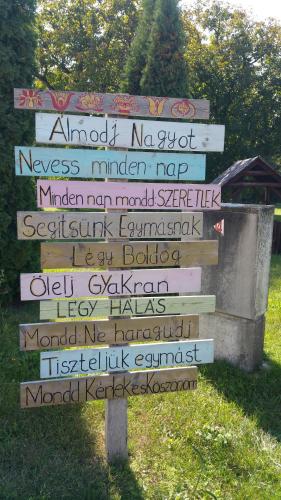 Álmodj Nagyot
Nevess minden nap
Minden nap mondd: SZERETLEK
Segítsünk Egymásnak
Légy Boldog
Ölelj GYAKran
LÉGY HÁLÁS
Mondd: Ne haragudj
Tiszteljük egymást
Mondd Kérlek és Köszönöm